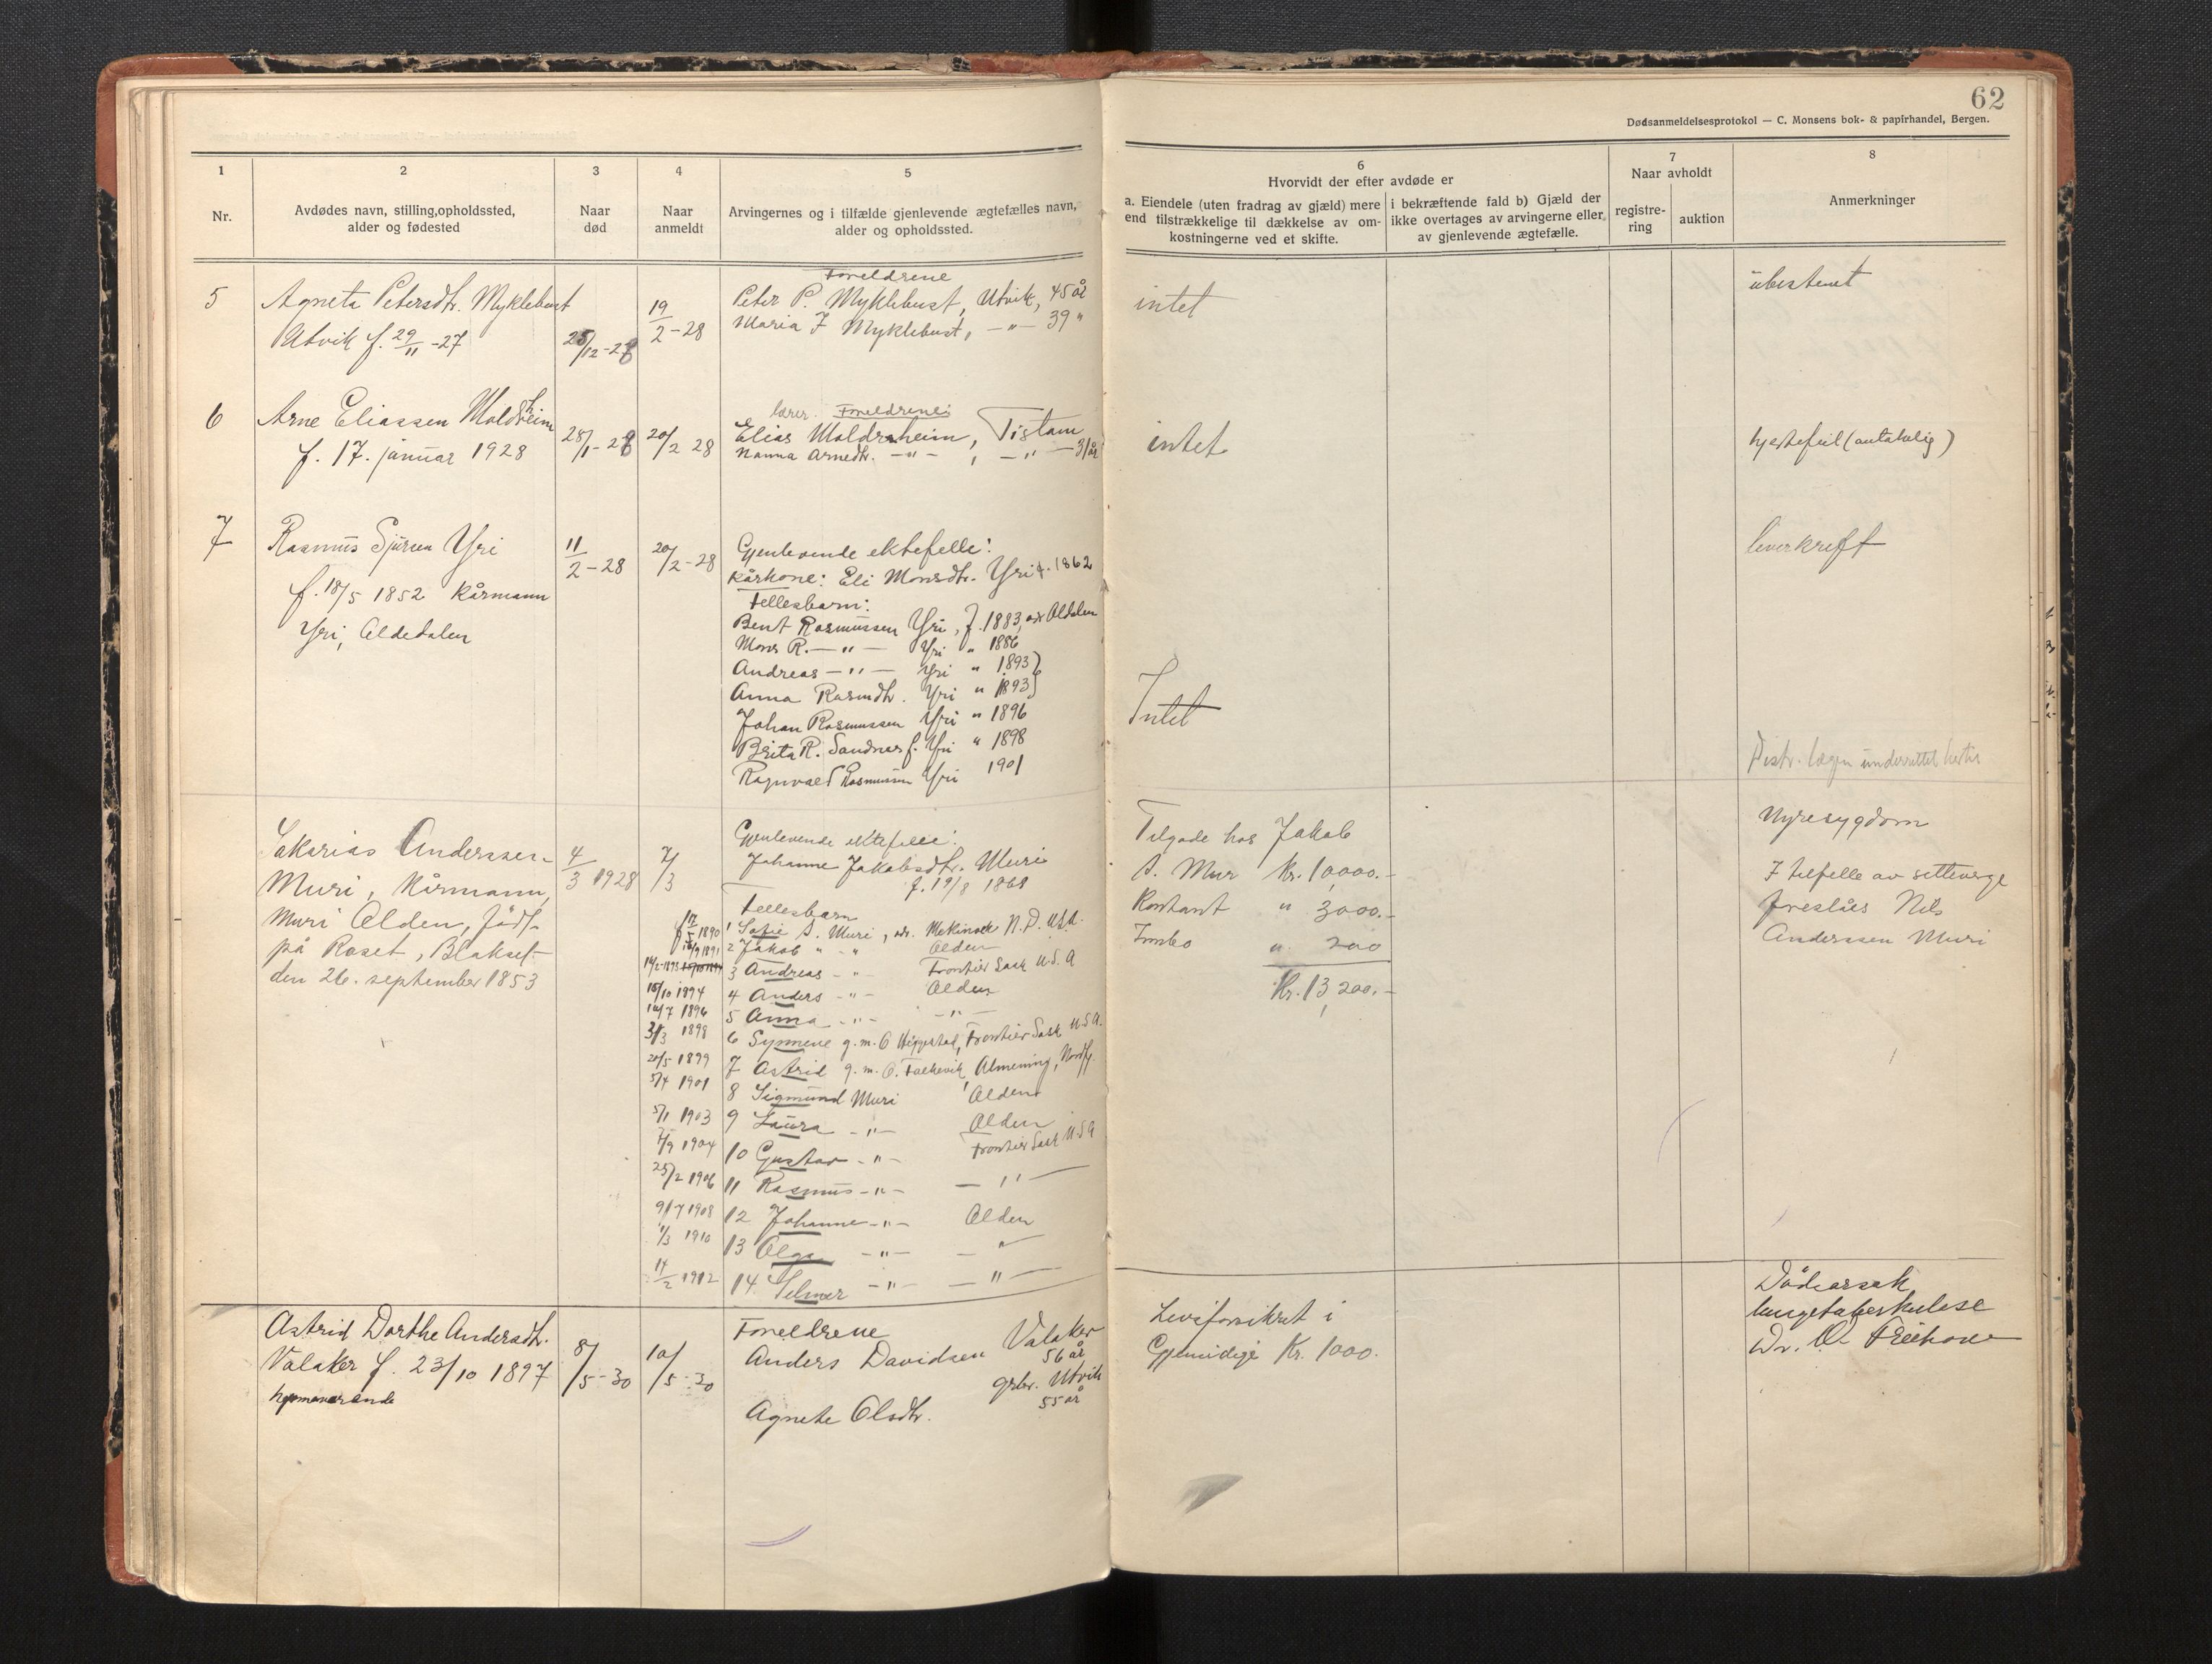 62
Dødsanmeldelsesprotokol — C. Monsens bok- & papirhandel, Bergen.
1
Nr.
2
Avdødes navn, stilling, opholdssted,
alder og fødested
3
Naar
død
4
Naar
anmeldt
5
Arvingernes og i tilfælde gjenlevende ægtefælles navn,
alder og opholdssted.
6
Hvorvidt der efter avdøde er
a. Eiendele (uten fradrag av gjæld) mere
end tilstrækkelige til dækkelse av om-
kostningerne ved et skifte.
i bekræftende fald b) Gjæld der
ikke overtages av arvingerne eller
av gjenlevende ægtefælle.
7
Naar avholdt
registre-
ring
auktion
8
Anmerkninger
5
Agneta Petersdtr. Myklebust
Utvik f. 29/11 -27
25/12-28
19/2-28
Foreldrene
Peter P. Myklebust, Utvik, 45 år
Maria J Myklebust, -"- 39 "
intet
ubestemt
6
Arne Eliassen Moldrheim
f. 17. januar 1928
28/1-28
20/2 28
lærer. Foreldrene:
Elias Moldrheim, Tistam
Nanna Arnedtr. -"- , -"- 31 år
intet
hjertefeil (antakelig)
7
Rasmus Sjursen Yri
f. 18/5 1852 Kårmann
Yri, Oldedalen
11/2-28
20/2-28
Gjenlevende ektefelle:
Kårkone: Eli Monsdtr. Yri f. 1862
Fellesbarn:
Bent Rasmussen Yri, f. 1883, adr Oldalen
Mons R. -"- Yri " 1886
Andreas -"- Yri " 1893
Anna Rasmdtr. Yri " 1893
Johan Rasmussen Yri " 1896
Brita R. Sandnes f. Yri " 1898
Ragnvald Rasmussen Yri 1901
Intet
leverkreft
Distr. lægen underrettet herom
Sakarias Anderssen
Muri, Kårmann,
Muri Olden, født
på Roset, Blakset
den 26. september 1853
4/3 1928
7/3
Gjenlevende ektefelle:
Johanne Jakobsdtr. Muri
f. 19/8 1868
Fellesbarn
1890 1 Sofie S. Muri, adr. Mekinock N.D. U.S.A.
1891 2 Jakob " " Olden
14/2-1893 3 Andreas -"- Frontier Sask U.S.A
15/10 1894 4 Anders -"- Olden
10/7 1896 5 Anna -"- -"-
31/3 1898 6 Synneve g.m. O Heggestad, Frontier Sask U.S.A.
20/5 1899 7 Astrid g.m. O. Falkevik, Almenning, Nordfj.
5/4 1901 8 Sigmund Muri Olden
5/1 1903 9 Laura -"- Olden
7/9 1904 10 Gustav -"- Frontier Sask U.S.A
25/2 1906 11 Rasmus -"- -"-
9/7 1908 12 Johanne -"- Olden
1/3 1910 13 Olga -"- -"-
14/2 1912 14 Selmer -"- -"-
Tilgode hos Jakob
S. Muri Kr. 10,000.-
Kontant " 3000.-
Innbo " 200
Kr. 13,200.-
Nyresygdom
I tilfelle av setteverge
foreslåes Nils
Anderssen Muri
Astrid Dorthe Andersdtr.
Valaker f. 23/10 1897
hjemmeværande
8/5-30
10/5-30
Foreldrene
Anders Davidsen Valaker
56 år
grbr. Utvik
Agnete Olsdtr. 55 år
Livsforsikret i
Gjensidige Kr. 1000.
Dødsårsak
lungetuberkulose
Dr. O.